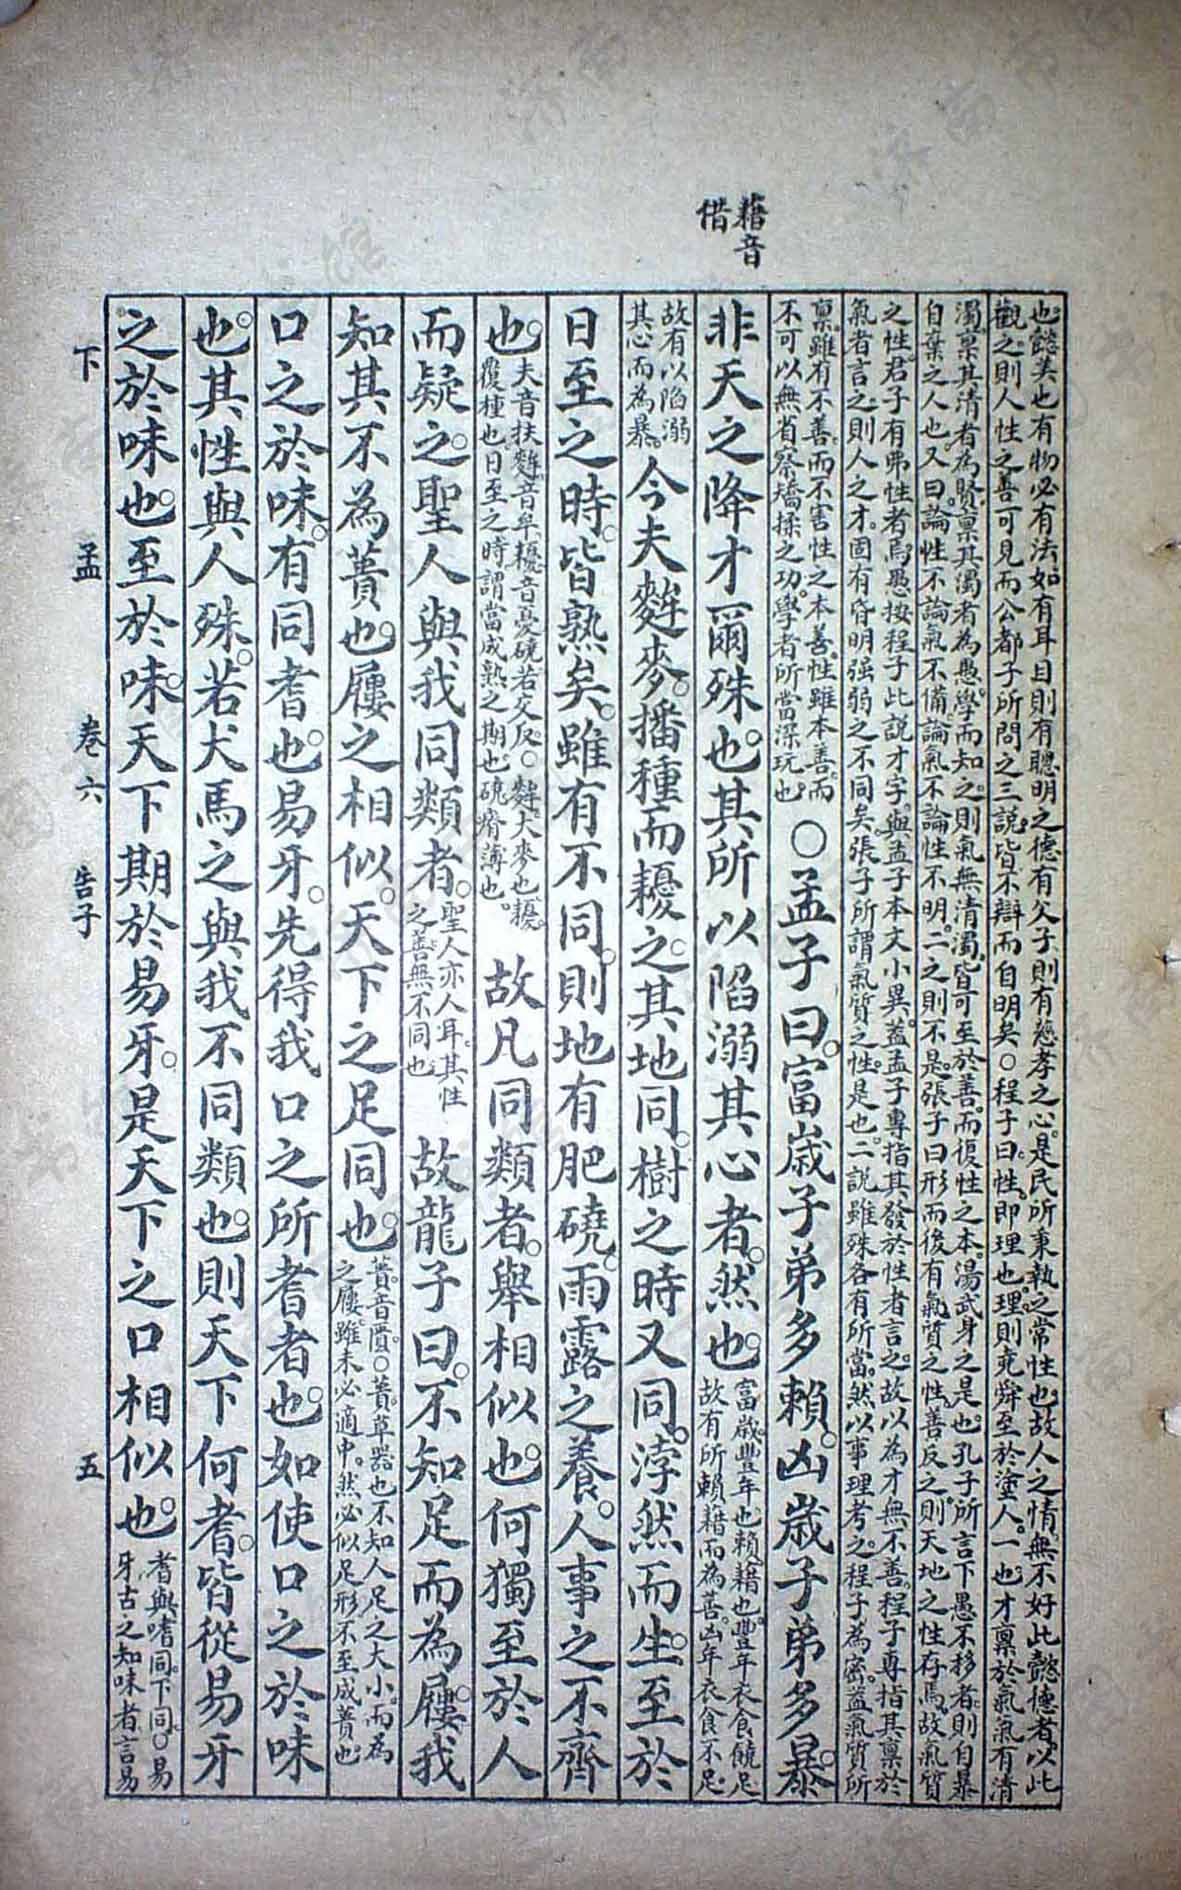 藉音
借
也懿美也有物必有法如有耳目則有聰明之德有父子則有慈孝之心是民所秉執之常性也故人之情無不好此懿德者以此
觀之則人性之善可見而公都子所問之三說皆不辯而自明矣○程子曰性即理也理則堯舜至於塗人一也才稟於氣氣有清
濁稟其清者為賢稟其濁者為愚學而知之則氣無清濁皆可至於善而復性之本湯武身之是也孔子所言下愚不移者則自暴
自棄之人也又曰論性不論氣不備論氣不論性不明二之則不是張子曰形而後有氣質之性善反之則天地之性存焉故氣質
之性君子有弗性者焉愚按程子此說才字與孟子本文小異蓋孟子專指其發於性者言之故以為才無不善程子專指其稟於
氣者言之則人之才固有昏明强弱之不同矣張子所謂氣質之性是也二說雖殊各有所當然以事理考之程子為密蓋氣質所
稟雖有不善而不害性之本善性雖本善而
不可以無省察矯揉之功學者所當深玩也
○孟子曰富歲子弟多賴凶歲子弟多暴
非天之降才爾殊也其所以陷溺其心者然也
富歲豐年也賴藉也豐年衣食饒足
故有所賴藉而為善凶年衣食不足
故有以陷溺
其心而為暴
今夫麰麥播種而耰之其地同樹之時又同浡然而生至於
日至之時皆熟矣雖有不同則地有肥磽雨露之養人事之不齊
也
夫音扶麰音牟耰音憂磽若交反○麰大麥也耰
覆種也日至之時謂當成熟之期也磽瘠薄也
故凡同類者舉相似也何獨至於人
而疑之聖人與我同類者
聖人亦人耳其性
之善無不同也
故龍子曰不知足而為屨我
知其不為蕢也屨之相似天下之足同也
蕢音匱○蕢草器也不知人足之大小而為
之屨雖未必適中然必似足形不至成蕢也
口之於味有同耆也易牙先得我口之所耆者也如使口之於味
也其性與人殊若犬馬之與我不同類也則天下何耆皆從易牙
之於味也至於味天下期於易牙是天下之口相似也
耆與嗜同下同○易
牙古之知味者言易
下 孟 卷六 告子 五